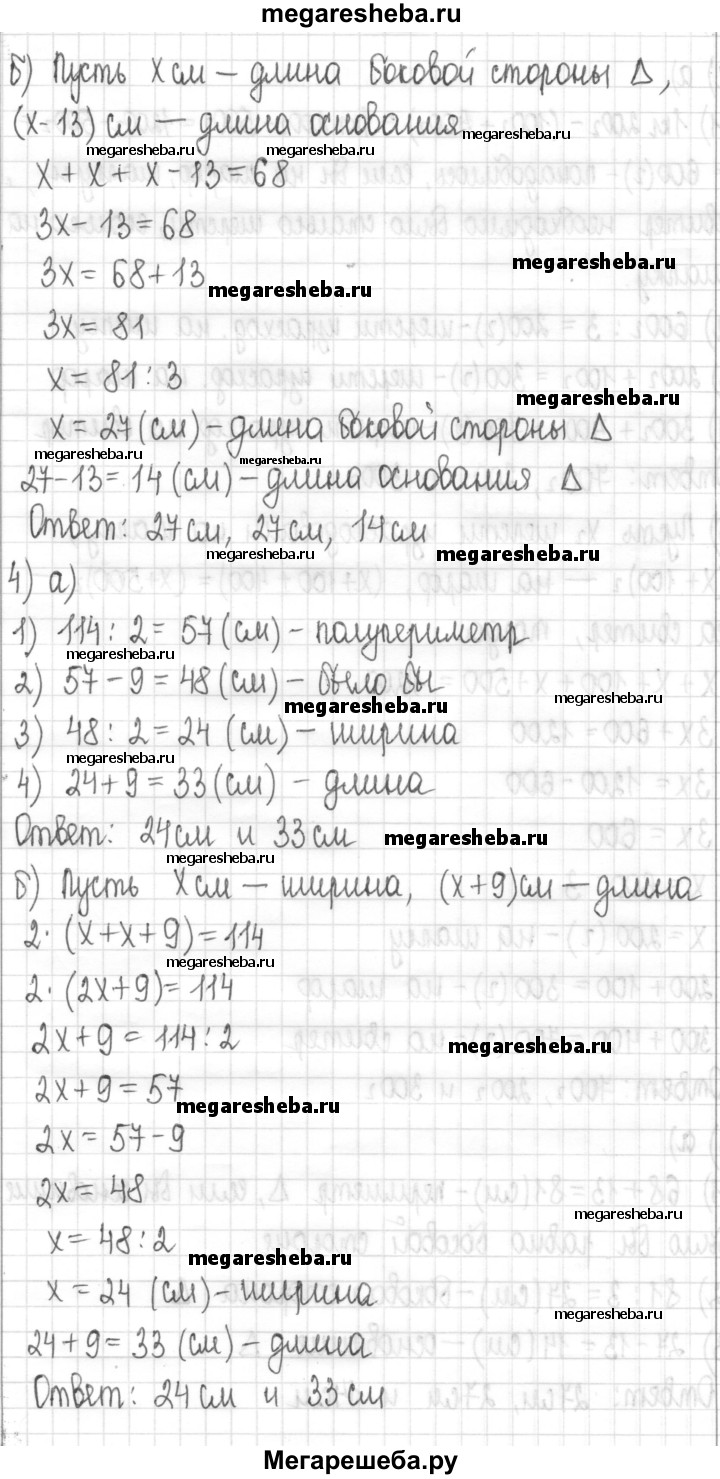 megaresheba.ru
б) Пусть х см – длина боковой стороны Δ,
(х-13) см – длина основания
megaresheba.ru
megaresheba.ru megaresheba.ru
х + х + х - 13 = 68
3х - 13 = 68
3х = 68 + 13
megaresheba.ru
megaresheba.ru
3х = 81
х = 81 : 3
megaresheba.ru
х = 27 (см) – длина боковой стороны Δ
megaresheba.ru megaresheba.ru
27 - 13 = 14 (см) – длина основания Δ
Ответ: 27 см, 27 см, 14 см
megaresheba.ru megaresheba.ru
4) а)
1) 114 : 2 = 57 (см) – полупериметр
megaresheba.ru
2) 57 - 9 = 48 (см) – было бы
megaresheba.ru megaresheba.ru
3) 48 : 2 = 24 (см) – ширина
4) 24 + 9 = 33 (см) – длина
Ответ: 24 см и 33 см
megaresheba.ru
megaresheba.ru
б) Пусть х см – ширина, (х + 9) см – длина
2 · (х + х + 9) = 114
megaresheba.ru
2 · (2х + 9) = 114
2х + 9 = 114 : 2
megaresheba.ru
2х + 9 = 57
megaresheba.ru
2х = 57 - 9
2х = 48
megaresheba.ru
х = 48 : 2
megaresheba.ru
х = 24 (см) – ширина
megaresheba.ru
24 + 9 = 33 (см) – длина
Ответ: 24 см и 33 см
Мегарешеба.ру